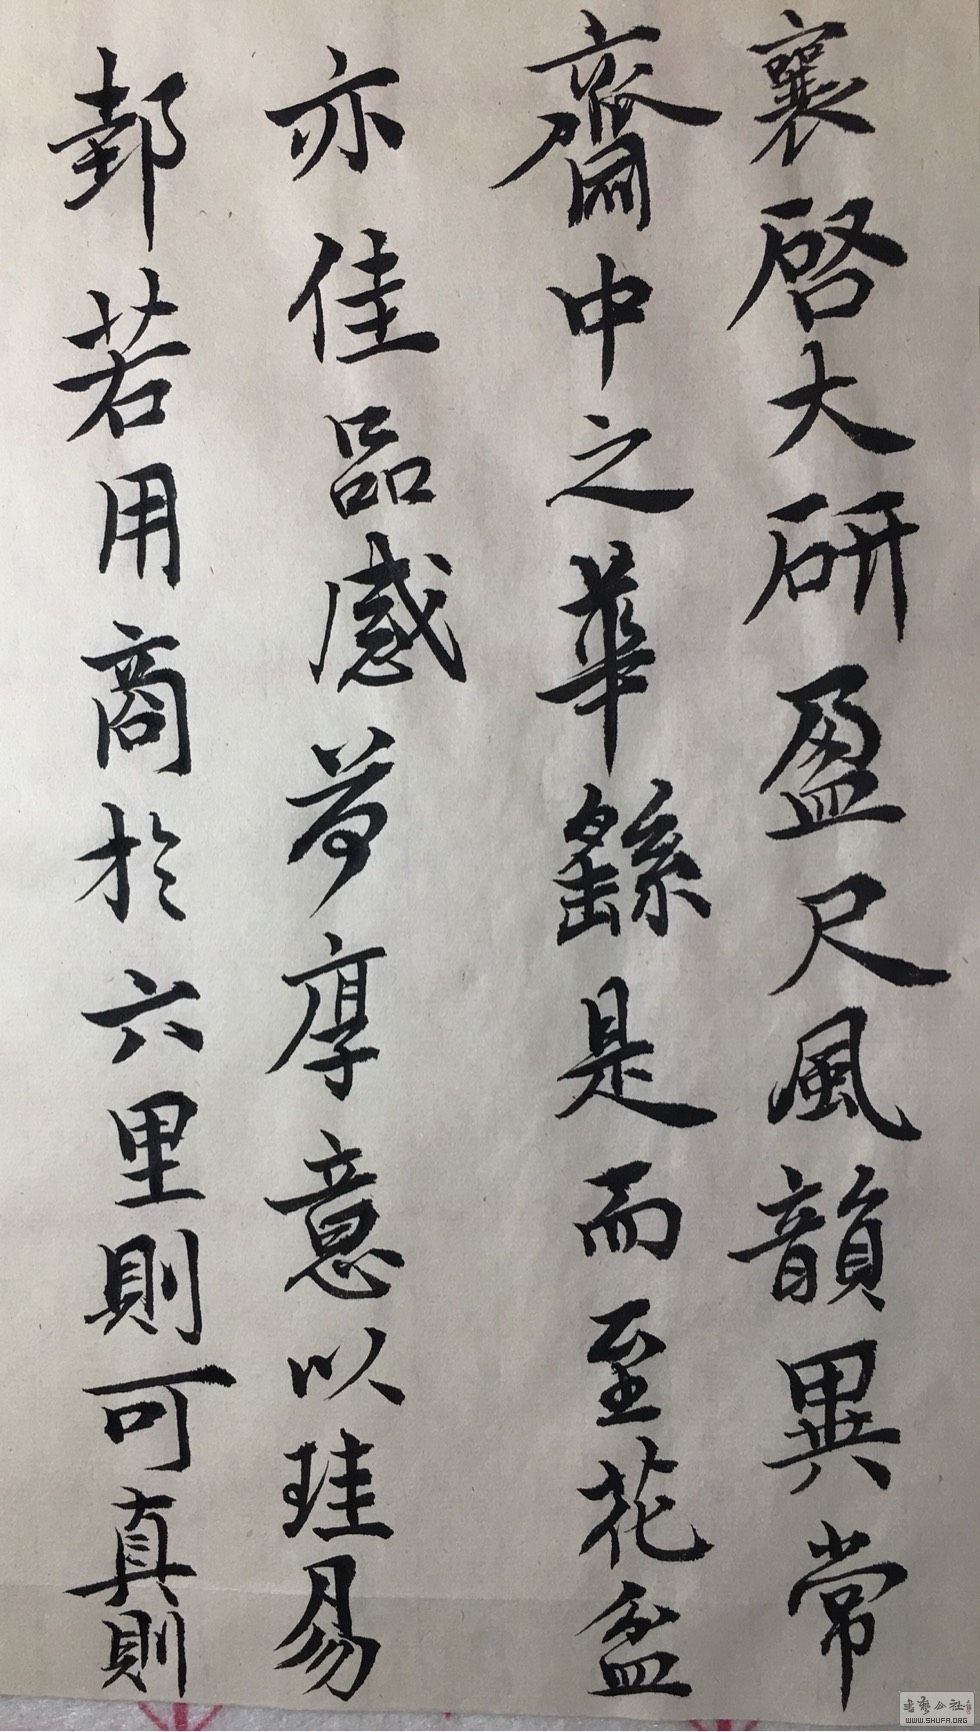 襄啓大研盈尺風韻異常
齋中之華繇是而至花盆
亦佳品感荷厚意以珪易
邽若用商於六里則可真則
書藝公社
WWW.SHUFA.ORG